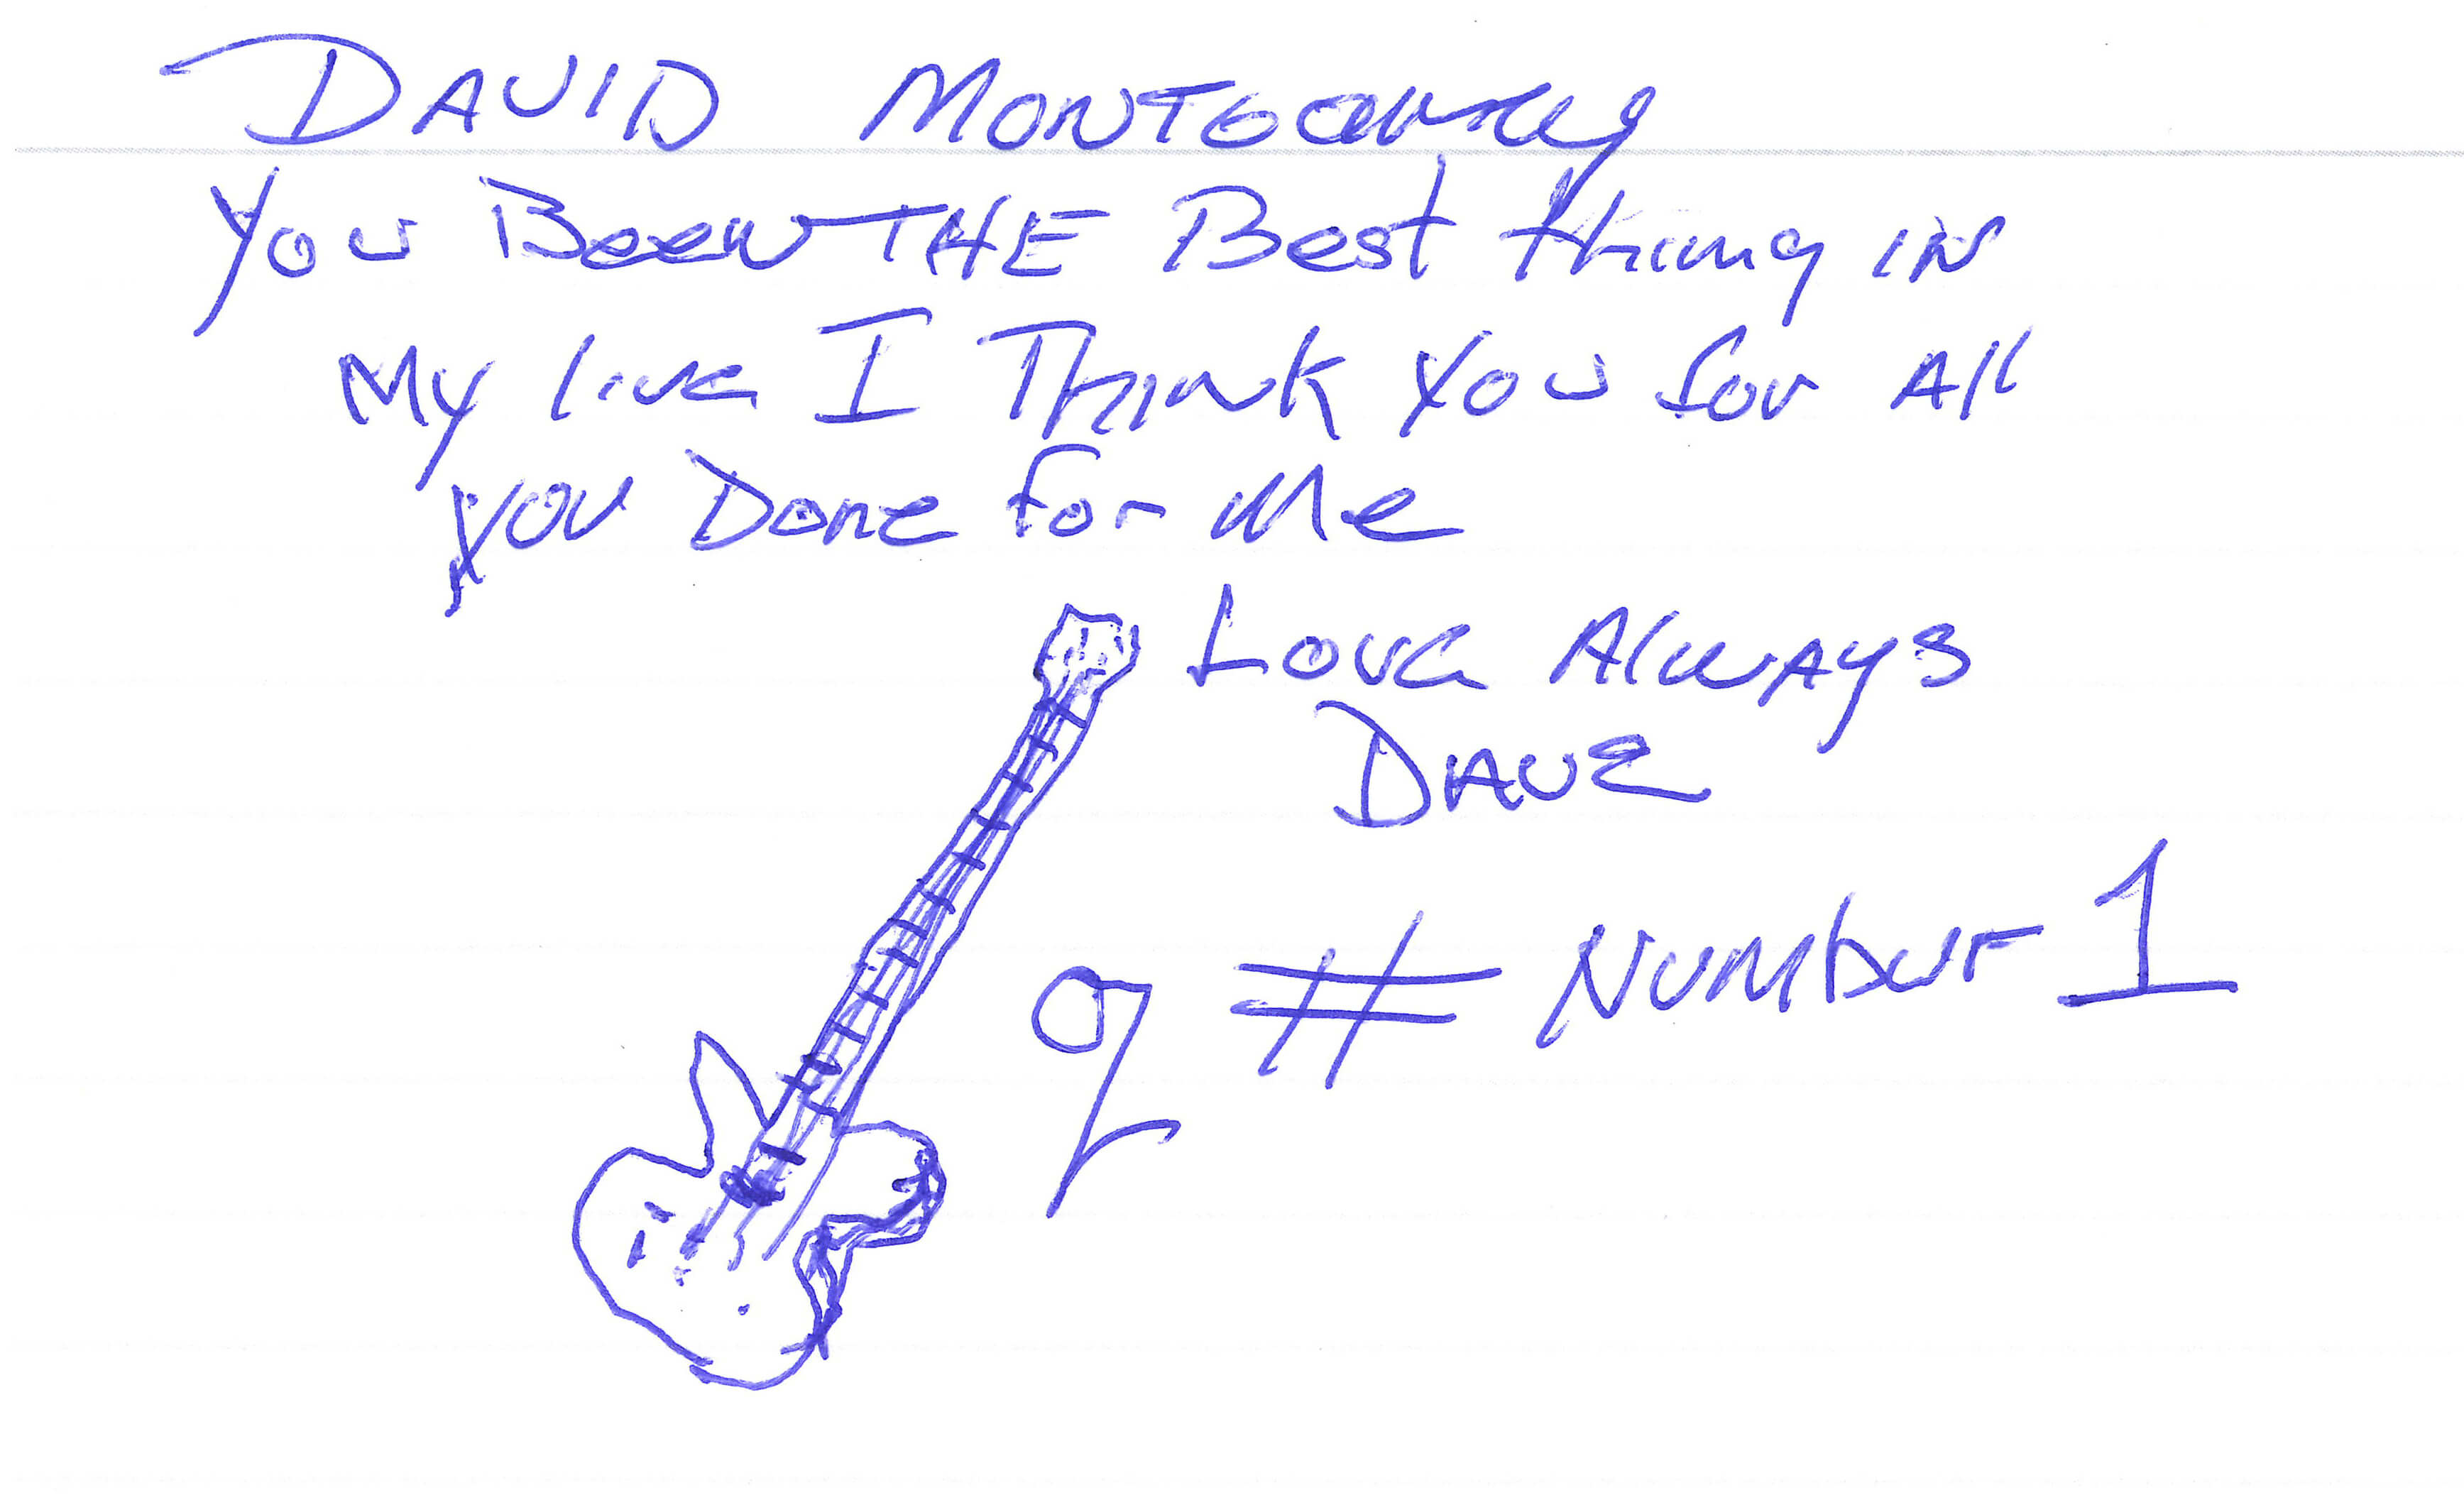 DAVID MONTGOMRY
You Been THE Best thing IN
My live I THINK You for All
you Done for Me
Love Always
DAVE
9 # Number 1